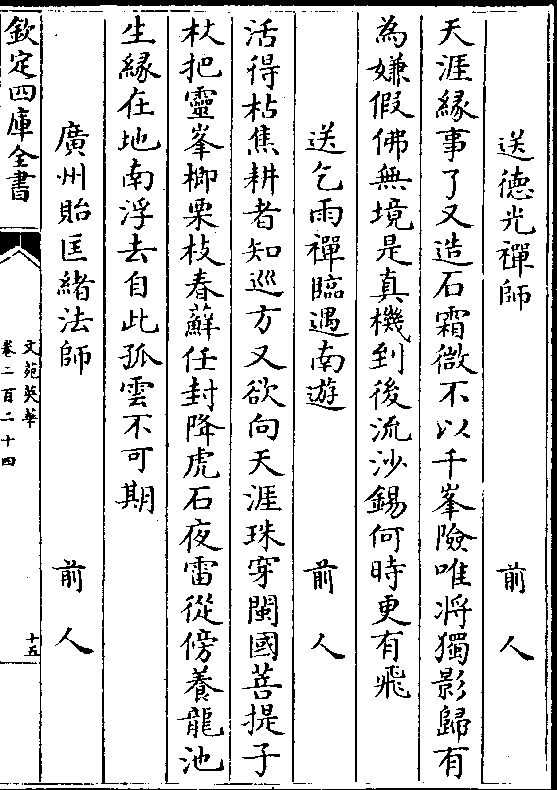 送德光禪師　前人
天涯緣事了又造石霜微不以千峯險唯将獨影歸有
為嫌假佛無境是真機到後流沙錫何時更有飛
送乞雨禪臨遇南遊　前人
活得枯焦耕者知巡方又欲向天涯珠穿閩國菩提子
杖把靈峯楖栗枝春蘚任封降虎石夜雷從傍養龍池
生緣在地南浮去自此孤雲不可期
廣州貽匡緒法師　前人
欽定四庫全書
文苑英華
卷二百二十四
十五